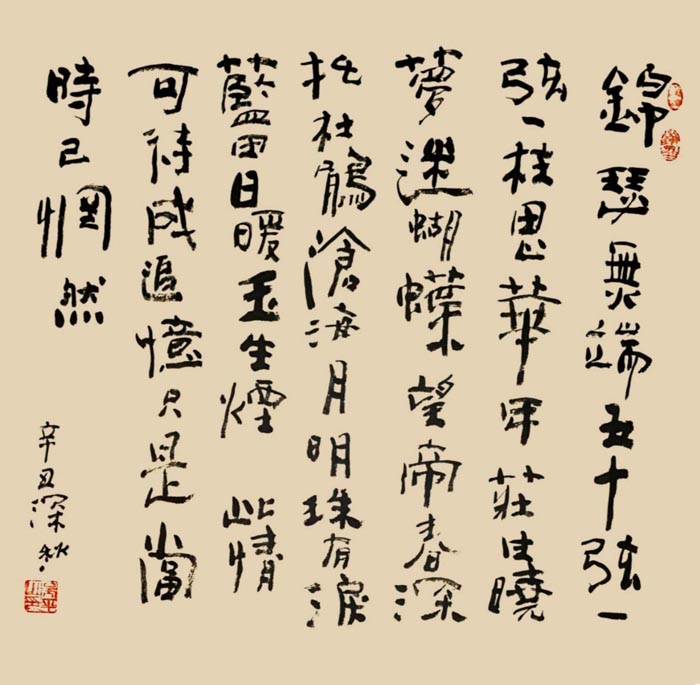 錦瑟無端五十弦一
弦一柱思華年莊生曉
夢迷蝴蝶望帝春深
托杜鵑滄海月明珠有淚
藍田日暖玉生煙此情
可待成追憶只是當
時已惘然
辛丑深秋